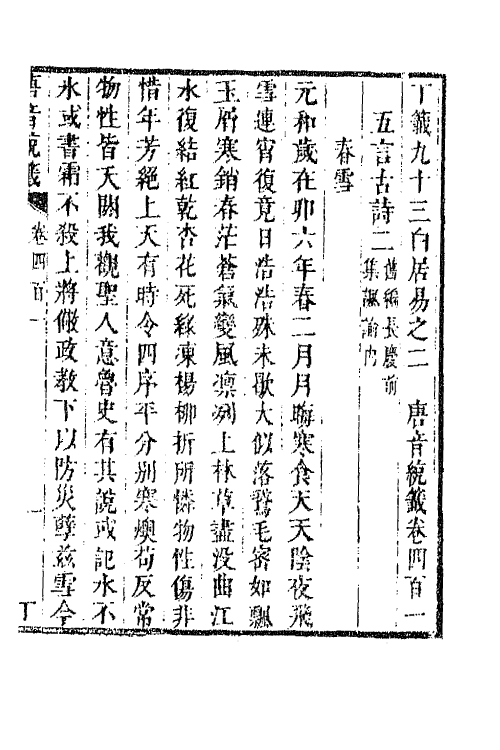 丁籖九十三白居易之二　唐音統籖卷四百一
五言古詩二舊編長慶前集諷諭內
春雪
元和歲在卯六年春二月月晦寒食天天陰夜飛
雪連宵復竟日浩浩殊未歇大似落鵞毛密如飄
玉屑寒銷春茫蒼氣變風凛冽上林草盡没曲江
水復結紅乾杏花死緑凍楊柳折所憐物性傷非
惜年芳絕上天有時令四序平分别寒燠苟反常
物性皆夭閼我觀聖人意魯史有其說或記水不
氷或書霜不殺上將儆政教下以防災孽兹雪今
唐音統籖　卷四百一　一
丁